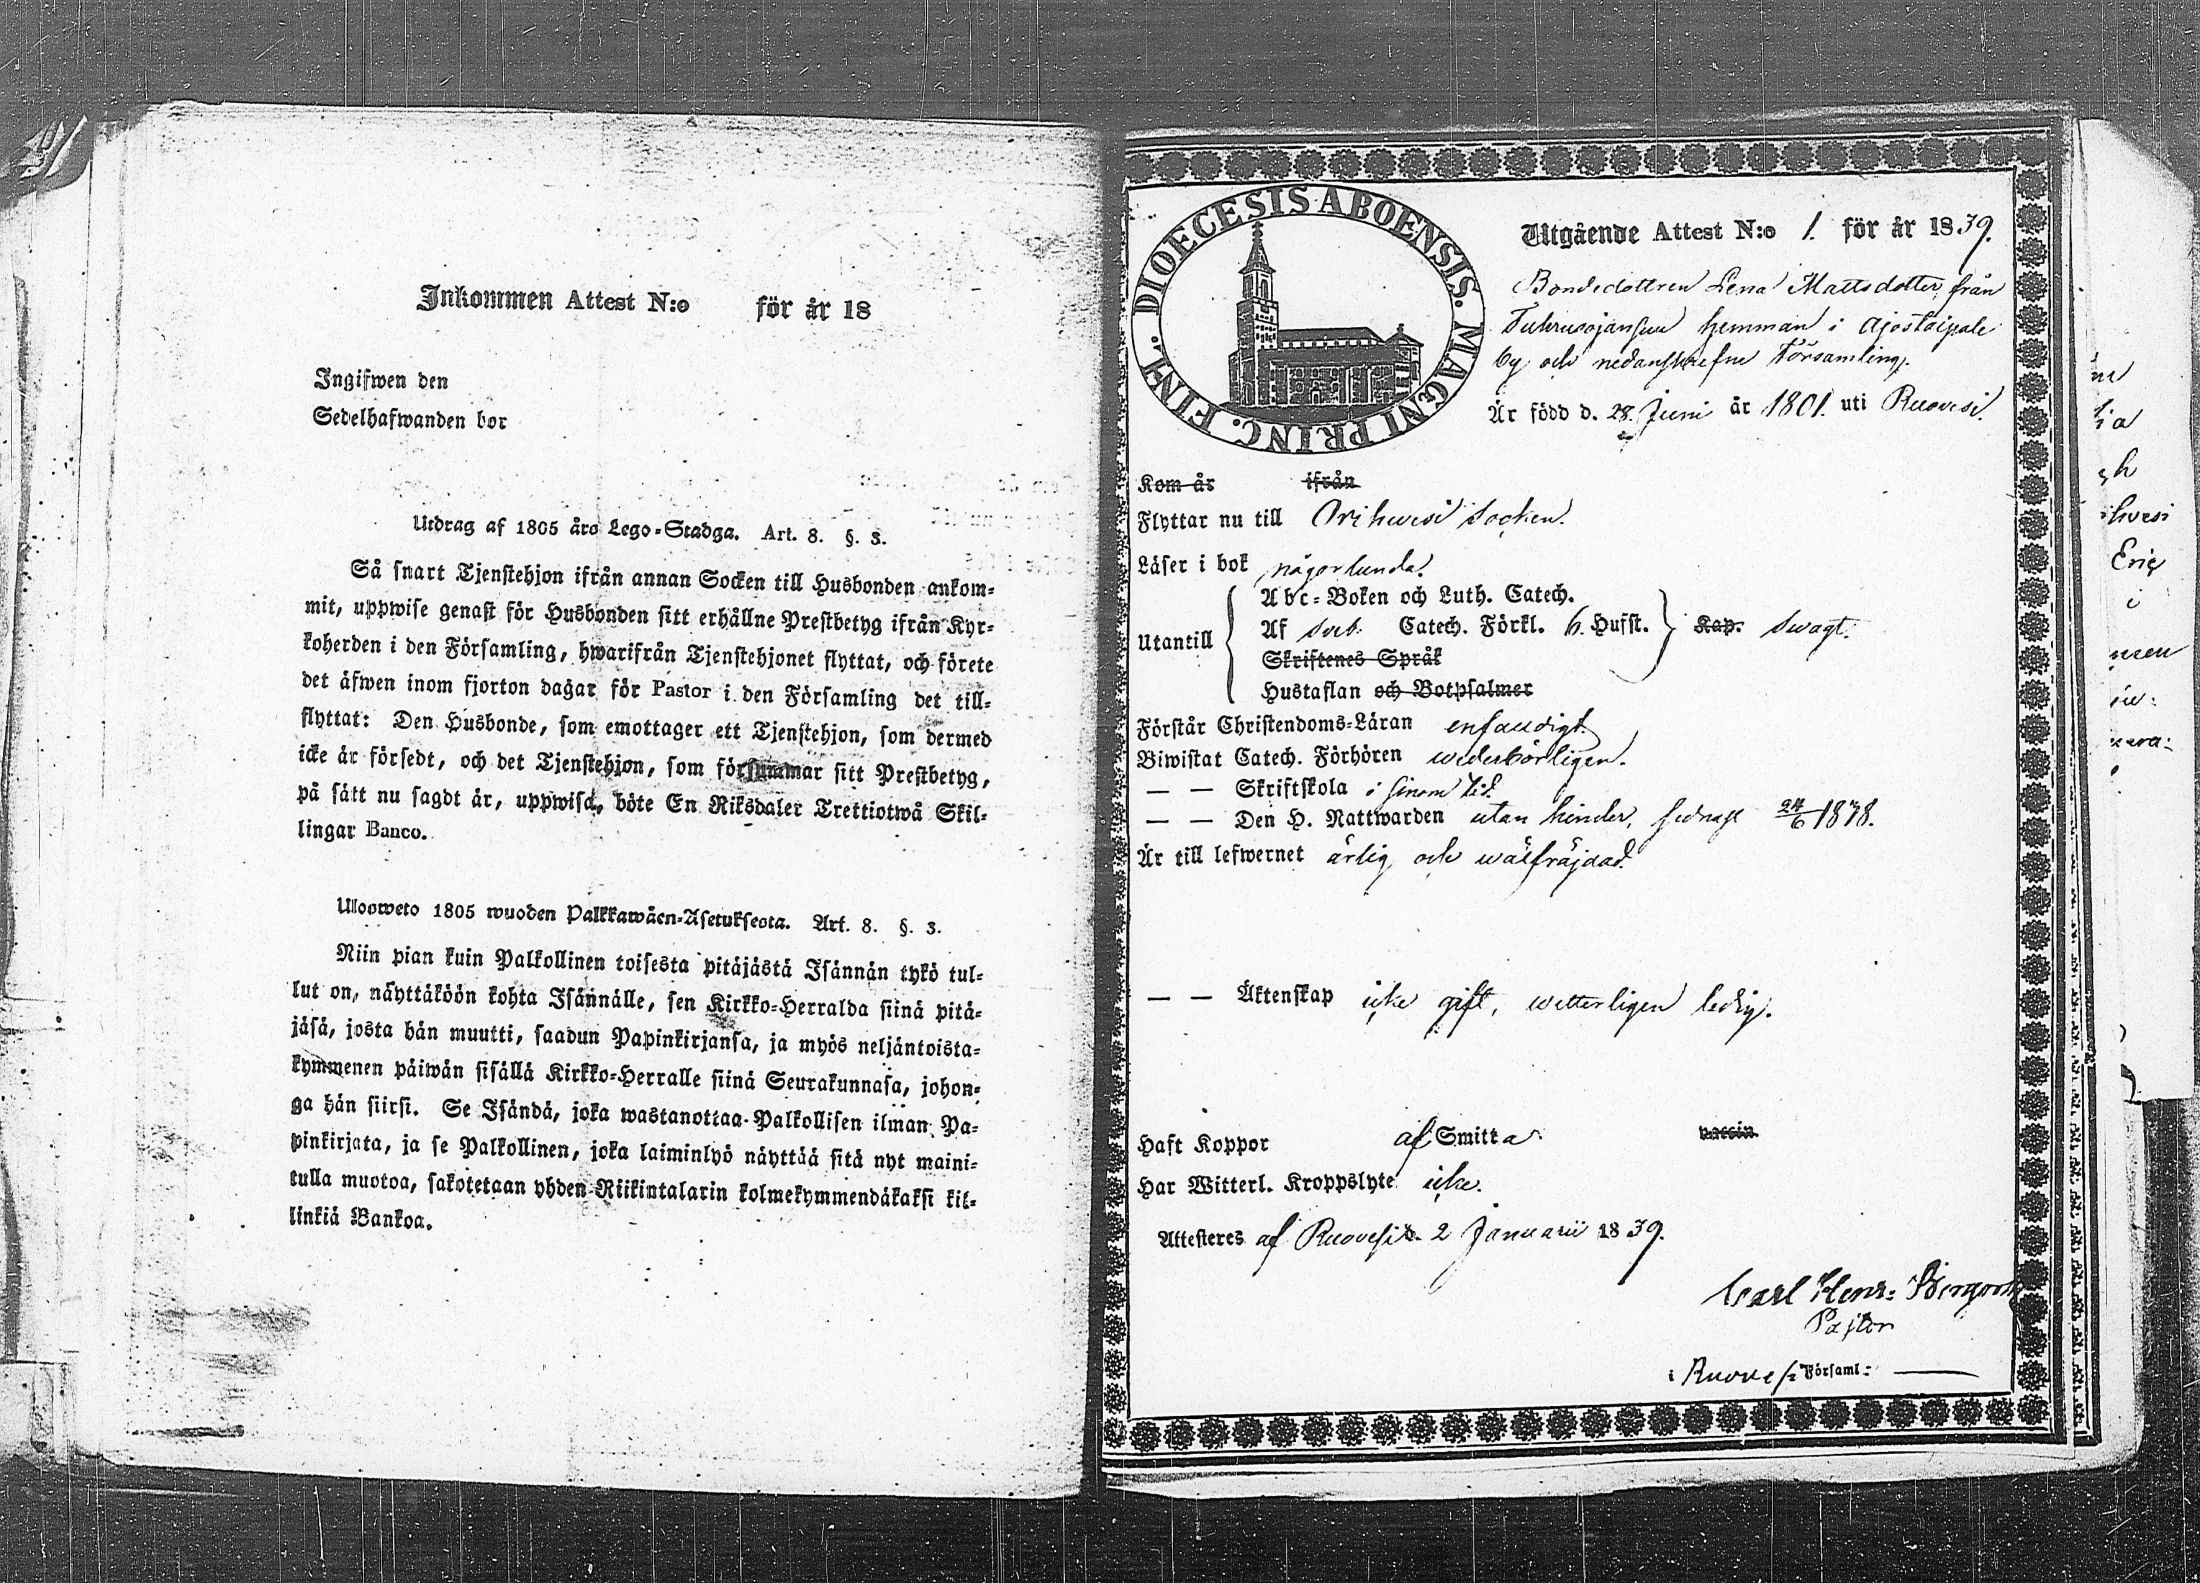 Inkommen Attest N:o för år 18
Ingifwen den
Sedelhafwanden bor
Utdrag af 1805 års Lego-Stadga. Art. 8. §. 3.
Så snart Tjenstehjon ifrån annan Socken till Husbonden ankom-
mit, uppwise genast för Husbonden sitt erhållne Prestbetyg ifrån Kyr-
koherden i den Församling, hwarifrån Tjenstehjonet flyttat, och förete
det äfwen inom fjorton dagar för Pastor i den Församling det till-
flyttat: Den Husbonde, som emottager ett Tjenstehjon, som dermed
icke är försedt, och det Tjenstehjon, som försummar sitt Prestbetyg,
på sätt nu sagdt är, uppwisa, böte En Riksdaler Trettiotwå Skil-
lingar Banco.
Ulosweto 1805 wuoden Palkkawäen-Asetuksesta. Art. 8. §. 3.
Niin pian kuin Palkollinen toisesta pitäjästä Isännän tykö tul-
lut on, näyttäköön kohta Isännälle, sen Kirkko-Herralda siinä pitä-
jäsä, josta hän muutti, saadun Papinkirjansa, ja myös neljäntoista-
kymmenen päiwän sisällä Kirkko-Herralle siinä Seurakunnasa, johon-
ga hän siirsi. Se Isändä, joka wastanottaa Palkollisen ilman Pa-
pinkirjata, ja se Palkollinen, joka laiminlyö näyttää sitä nyt maini-
tulla muotoa, sakotetaan yhden Riikintalarin kolmekymmendäkaksi kil-
linkiä Bankoa.
DIOECESIS ABOENSIS. MAGNI PRINC. FINL.
Utgående Attest N:o 1. för år 1839.
Bondedottren Lena Mattsdotter från
hemman i
by och nedanskrefne Församling.
Är född d. 28. Juni år 1801. uti Ruovesi.
Kom år ifrån
Flyttar nu till Orihvesi Socken.
Läser i bok någorlunda.
Abc-Boken och Luth. Catech.
Utantill Af Sveb. Catech. Förkl. 6. Hufst. Kap. Swagt.
Skriftenes Språk
Hustaflan och Botpsalmer
Förstår Christendoms-Läran enfaldigt.
Biwistat Catech. Förhören wederbörligen.
— — Skriftskola i sinom tid.
— — Den H. Nattwarden utan hinder, sednast 24/6 1838.
Är till lefwernet ärlig och wälfräjdad.
— — Äktenskap icke gift, wetterligen ledig.
Haft Koppor af Smitta vaccin
Har Witterl. Kroppslyte icke.
Attesteres af Ruovesi d. 2 Januarii 1839.
Carl Henr:
Pastor
i Ruovesi Församl: —